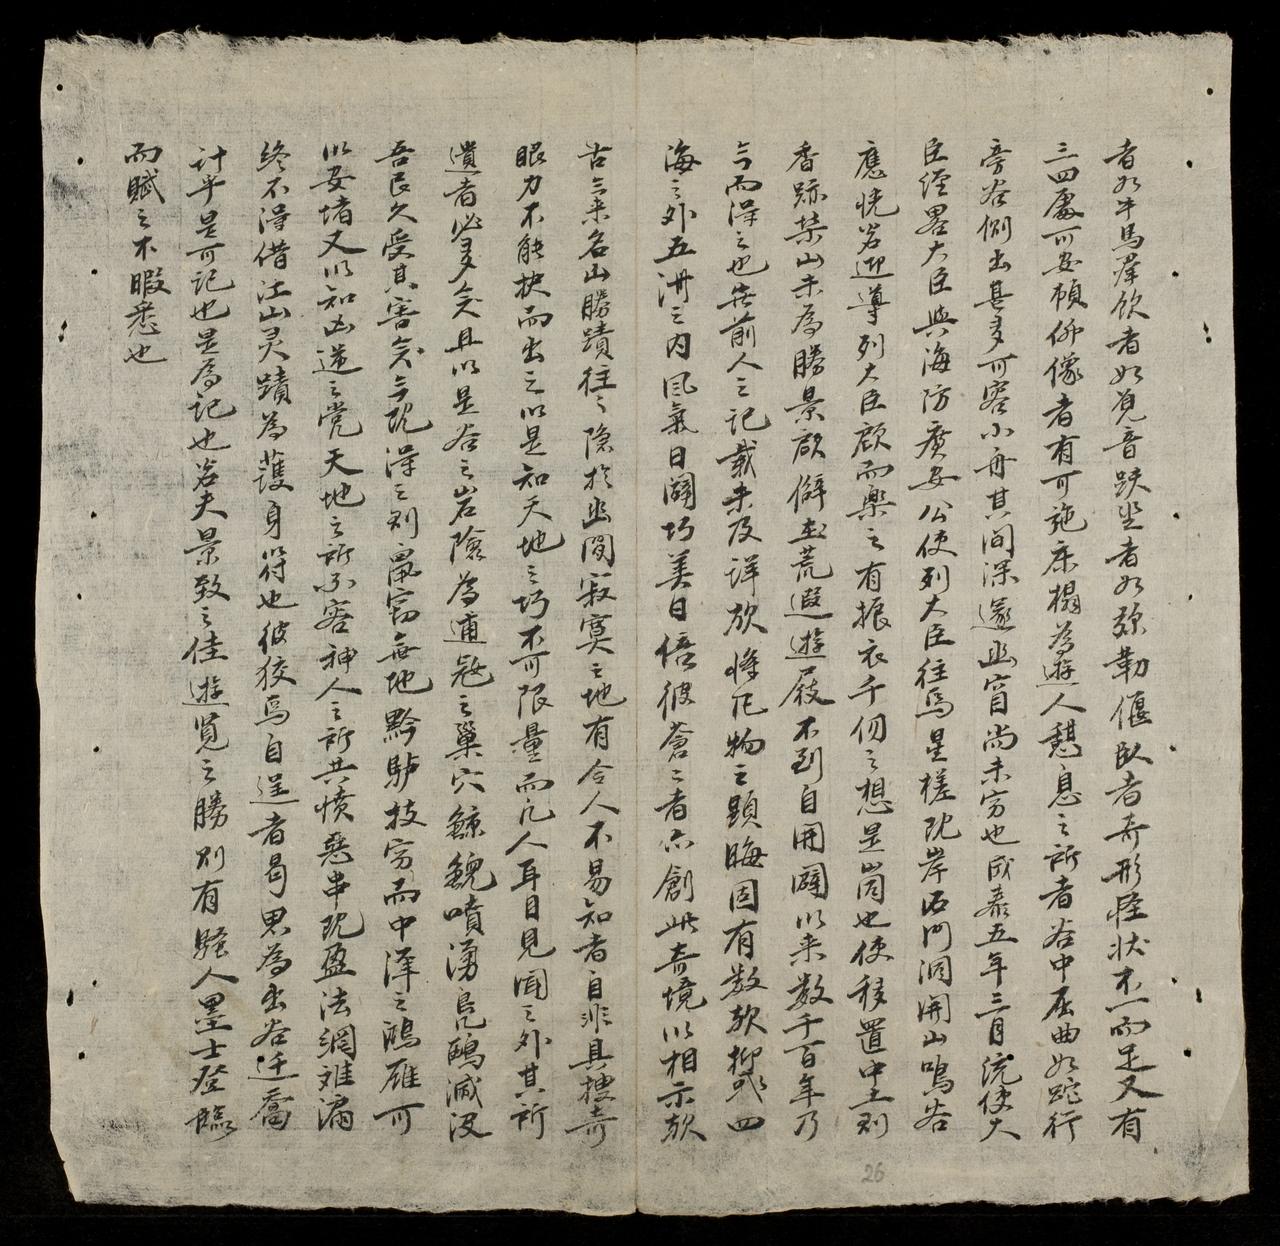 者如牛馬羣飲者如覓音趺坐者如弥勒偃臥者奇形怪状不一而足又有
三四處可安頓仰像者有可施床榻為遊人憩息之所者谷中屈曲如蛇行
旁谷側出甚多可容小舟其间深邃幽窅尚未穷也成泰五年三月统使大
臣经畧大臣與海防廣安公使列大臣往焉星槎既岸石门洞開山鳴谷
應恍若迎導列大臣顧而樂之有振衣千仞之想是崗也使移置中土則
香跡禁山未為勝景顧僻在荒遐遊屐不到自開闢以来数千百年乃
今而得之也無前人之記載未及詳欤将凡物之顯晦固有数欤抑或四
海之外五洲之内風氣日闢巧美日倍彼蒼々者亦創此奇境以相示欤
古今来名山勝蹟往々隐於幽閒寂寞之地有令人不易知者自非具搜奇
眼力不能抉而出之以是知天地之巧不可限量而凡人耳目見闻之外其所
遺者必多矣且以是谷之岩險為逋寇之巢穴鯨鯢噴湧鳧鷗滅没
吾民久受其害矣今既得之则鼠窃無地黔驴技穷而中泽之鴻雁可
以安堵又以知凶逆之党天地之所不容神人之所共愤惡串既盈法網难漏
终不得借江山灵蹟為護身符也彼狡焉自逞者曷思為出谷迁喬
计乎是可记也是為记也若夫景致之佳遊覧之勝別有騷人墨士登臨
而賦之不暇悉也
26